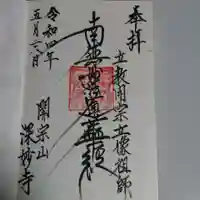 奉拝
立教開宗立像祖師
南無妙法蓮華経
令和四年
五月二八日
開宗山
深妙寺